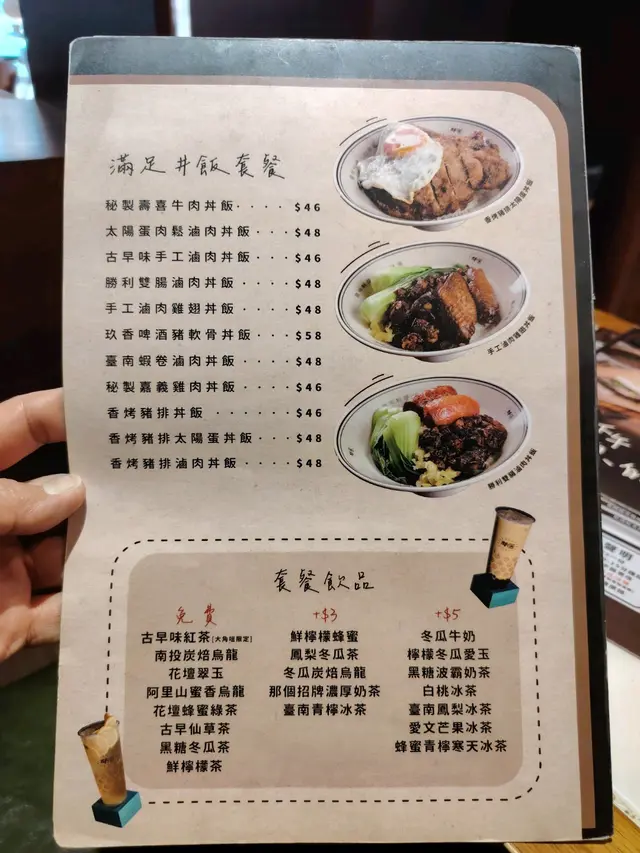 滿足丼飯套餐
秘製壽喜牛肉丼飯····$46
太陽蛋肉鬆滷肉丼飯··$48
古早味手工滷肉丼飯··$46
勝利雙腸滷肉丼飯···$48
手工滷肉雞翅丼飯···$48
玖香啤酒豬軟骨丼飯··$58
臺南蝦卷滷肉丼飯···$48
秘製嘉義雞肉丼飯···$46
香烤豬排丼飯 ·····$46
香烤豬排太陽蛋丼飯···$48
香烤豬排滷肉丼飯····$48
香烤豬排太陽蛋丼飯
手工滷肉雞翅丼飯
勝利雙腸滷肉丼飯
套餐飲品
免費
古早味紅茶[大角咀限定]
南投炭焙烏龍
花壇翠玉
阿里山蜜香烏龍
花壇蜂蜜綠茶
古早仙草茶
黑糖冬瓜茶
鮮檸檬茶
+$3
鮮檸檬蜂蜜
鳳梨冬瓜茶
冬瓜炭焙烏龍
那個招牌濃厚奶茶
臺南青檸冰茶
+$5
冬瓜牛奶
檸檬冬瓜愛玉
黑糖波霸奶茶
白桃冰茶
臺南鳳梨冰茶
愛文芒果冰茶
蜂蜜青檸寒天冰茶
聲明